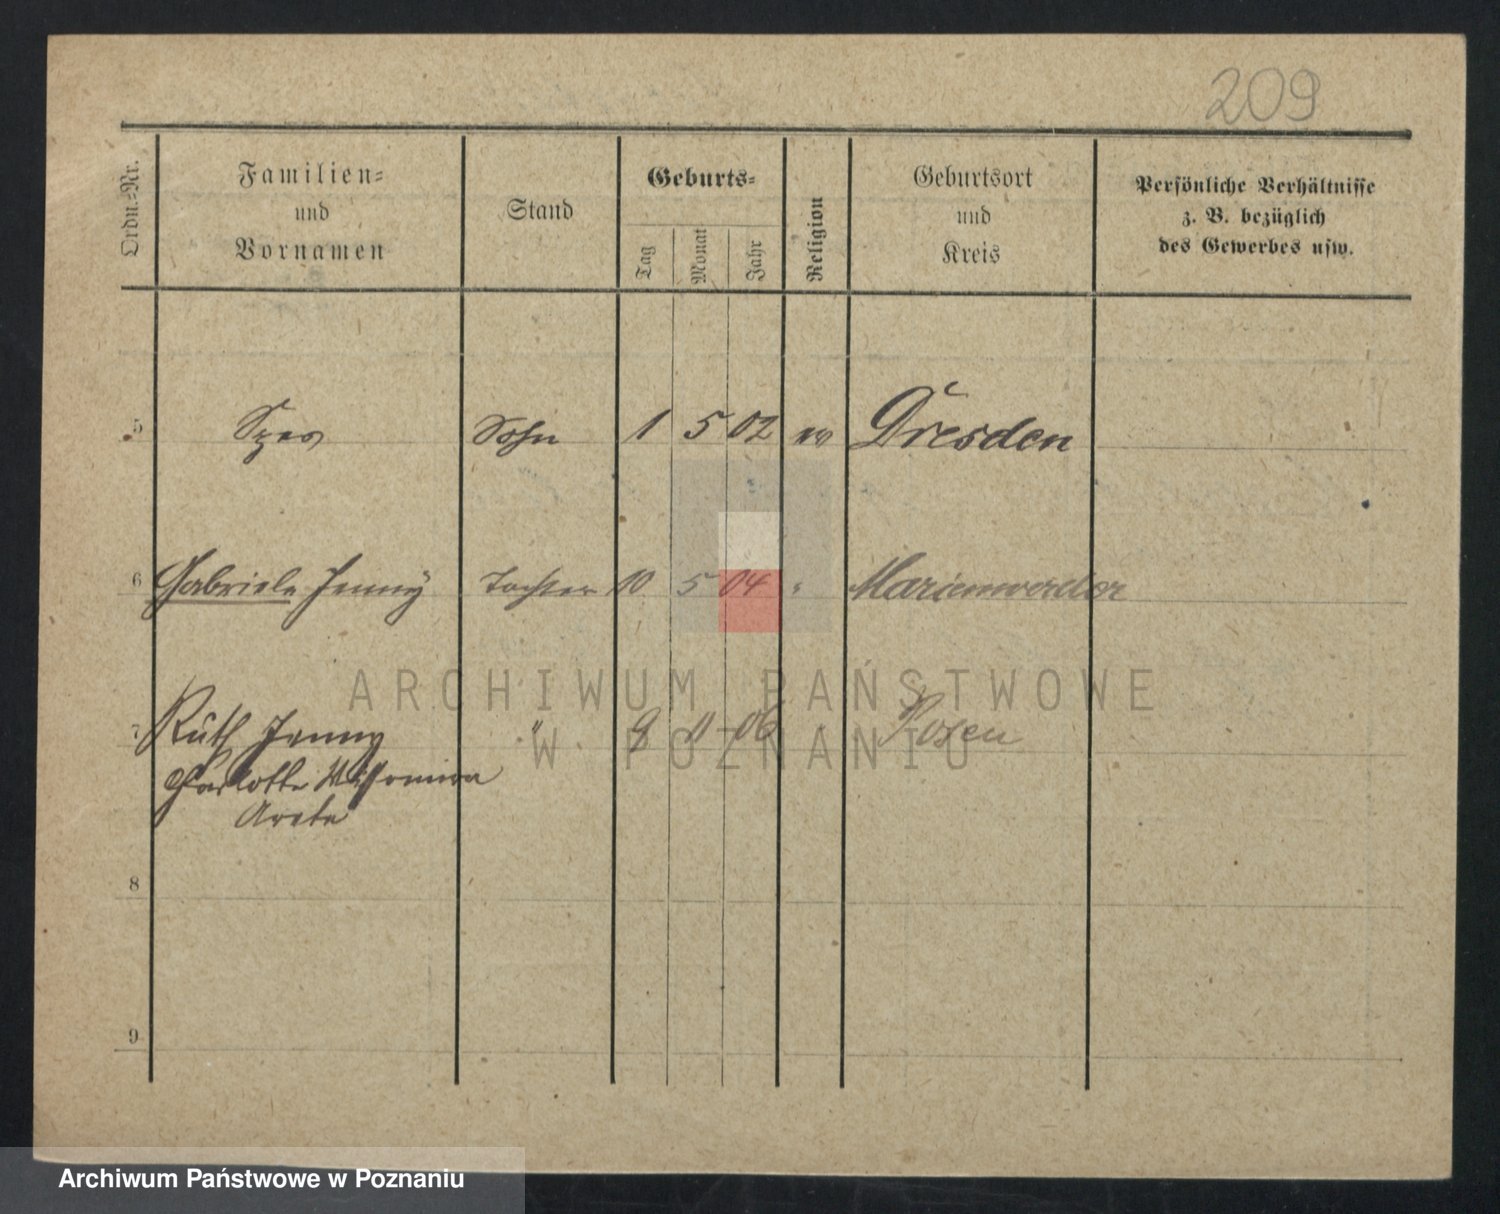 209
Ordn.-Nr.
Familien-
und
Vornamen
Stand
Geburts-
Tag
Monat
Jahr
Religion
Geburtsort
und
Kreis
Persönliche Verhältnisse
z. B. bezüglich
des Gewerbes usw.
5 Sohn 1 5 02 ev Dresden
6 Gabriele Jenny Tochter 10 5 04 " Marienwerder
7 Ruth Jenny " 9 11 06 " Posen
Charlotte
8
9
ARCHIWUM PAŃSTWOWE
W POZNANIU
Archiwum Państwowe w Poznaniu